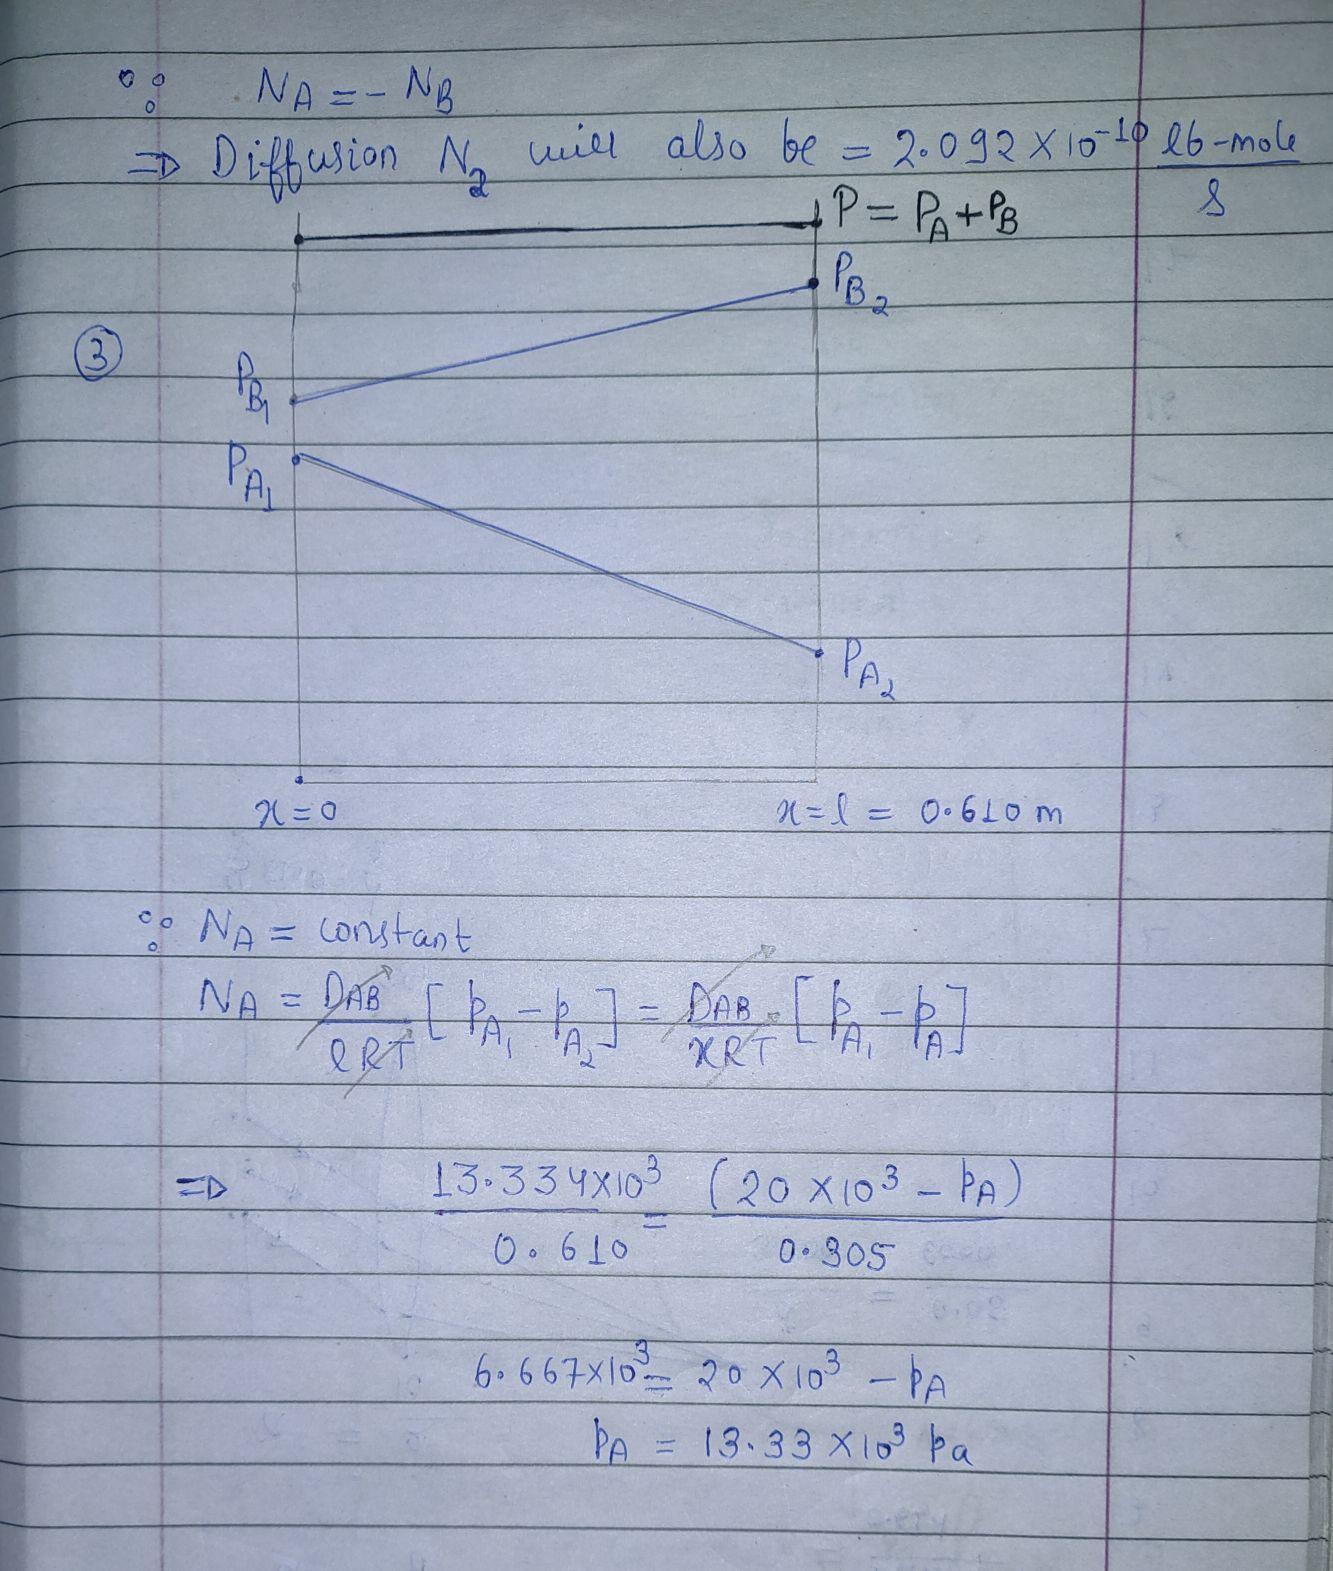 ∵ NA = - NB
⇒ Diffusion N₂ will also be = 2.092 × 10⁻¹⁰ lb-mole / s
P = PA + PB
PB₂
③
PB₁
PA₁
PA₂
x=0
x=l = 0.610 m
∵ NA = constant
NA = DAB/lRT [PA₁ - PA₂] = DAB/xRT [PA₁ - PA]
⇒ 13.334×10³/0.610 = (20×10³ - PA)/0.305
6.667×10³ = 20×10³ - PA
PA = 13.33 ×10³ Pa